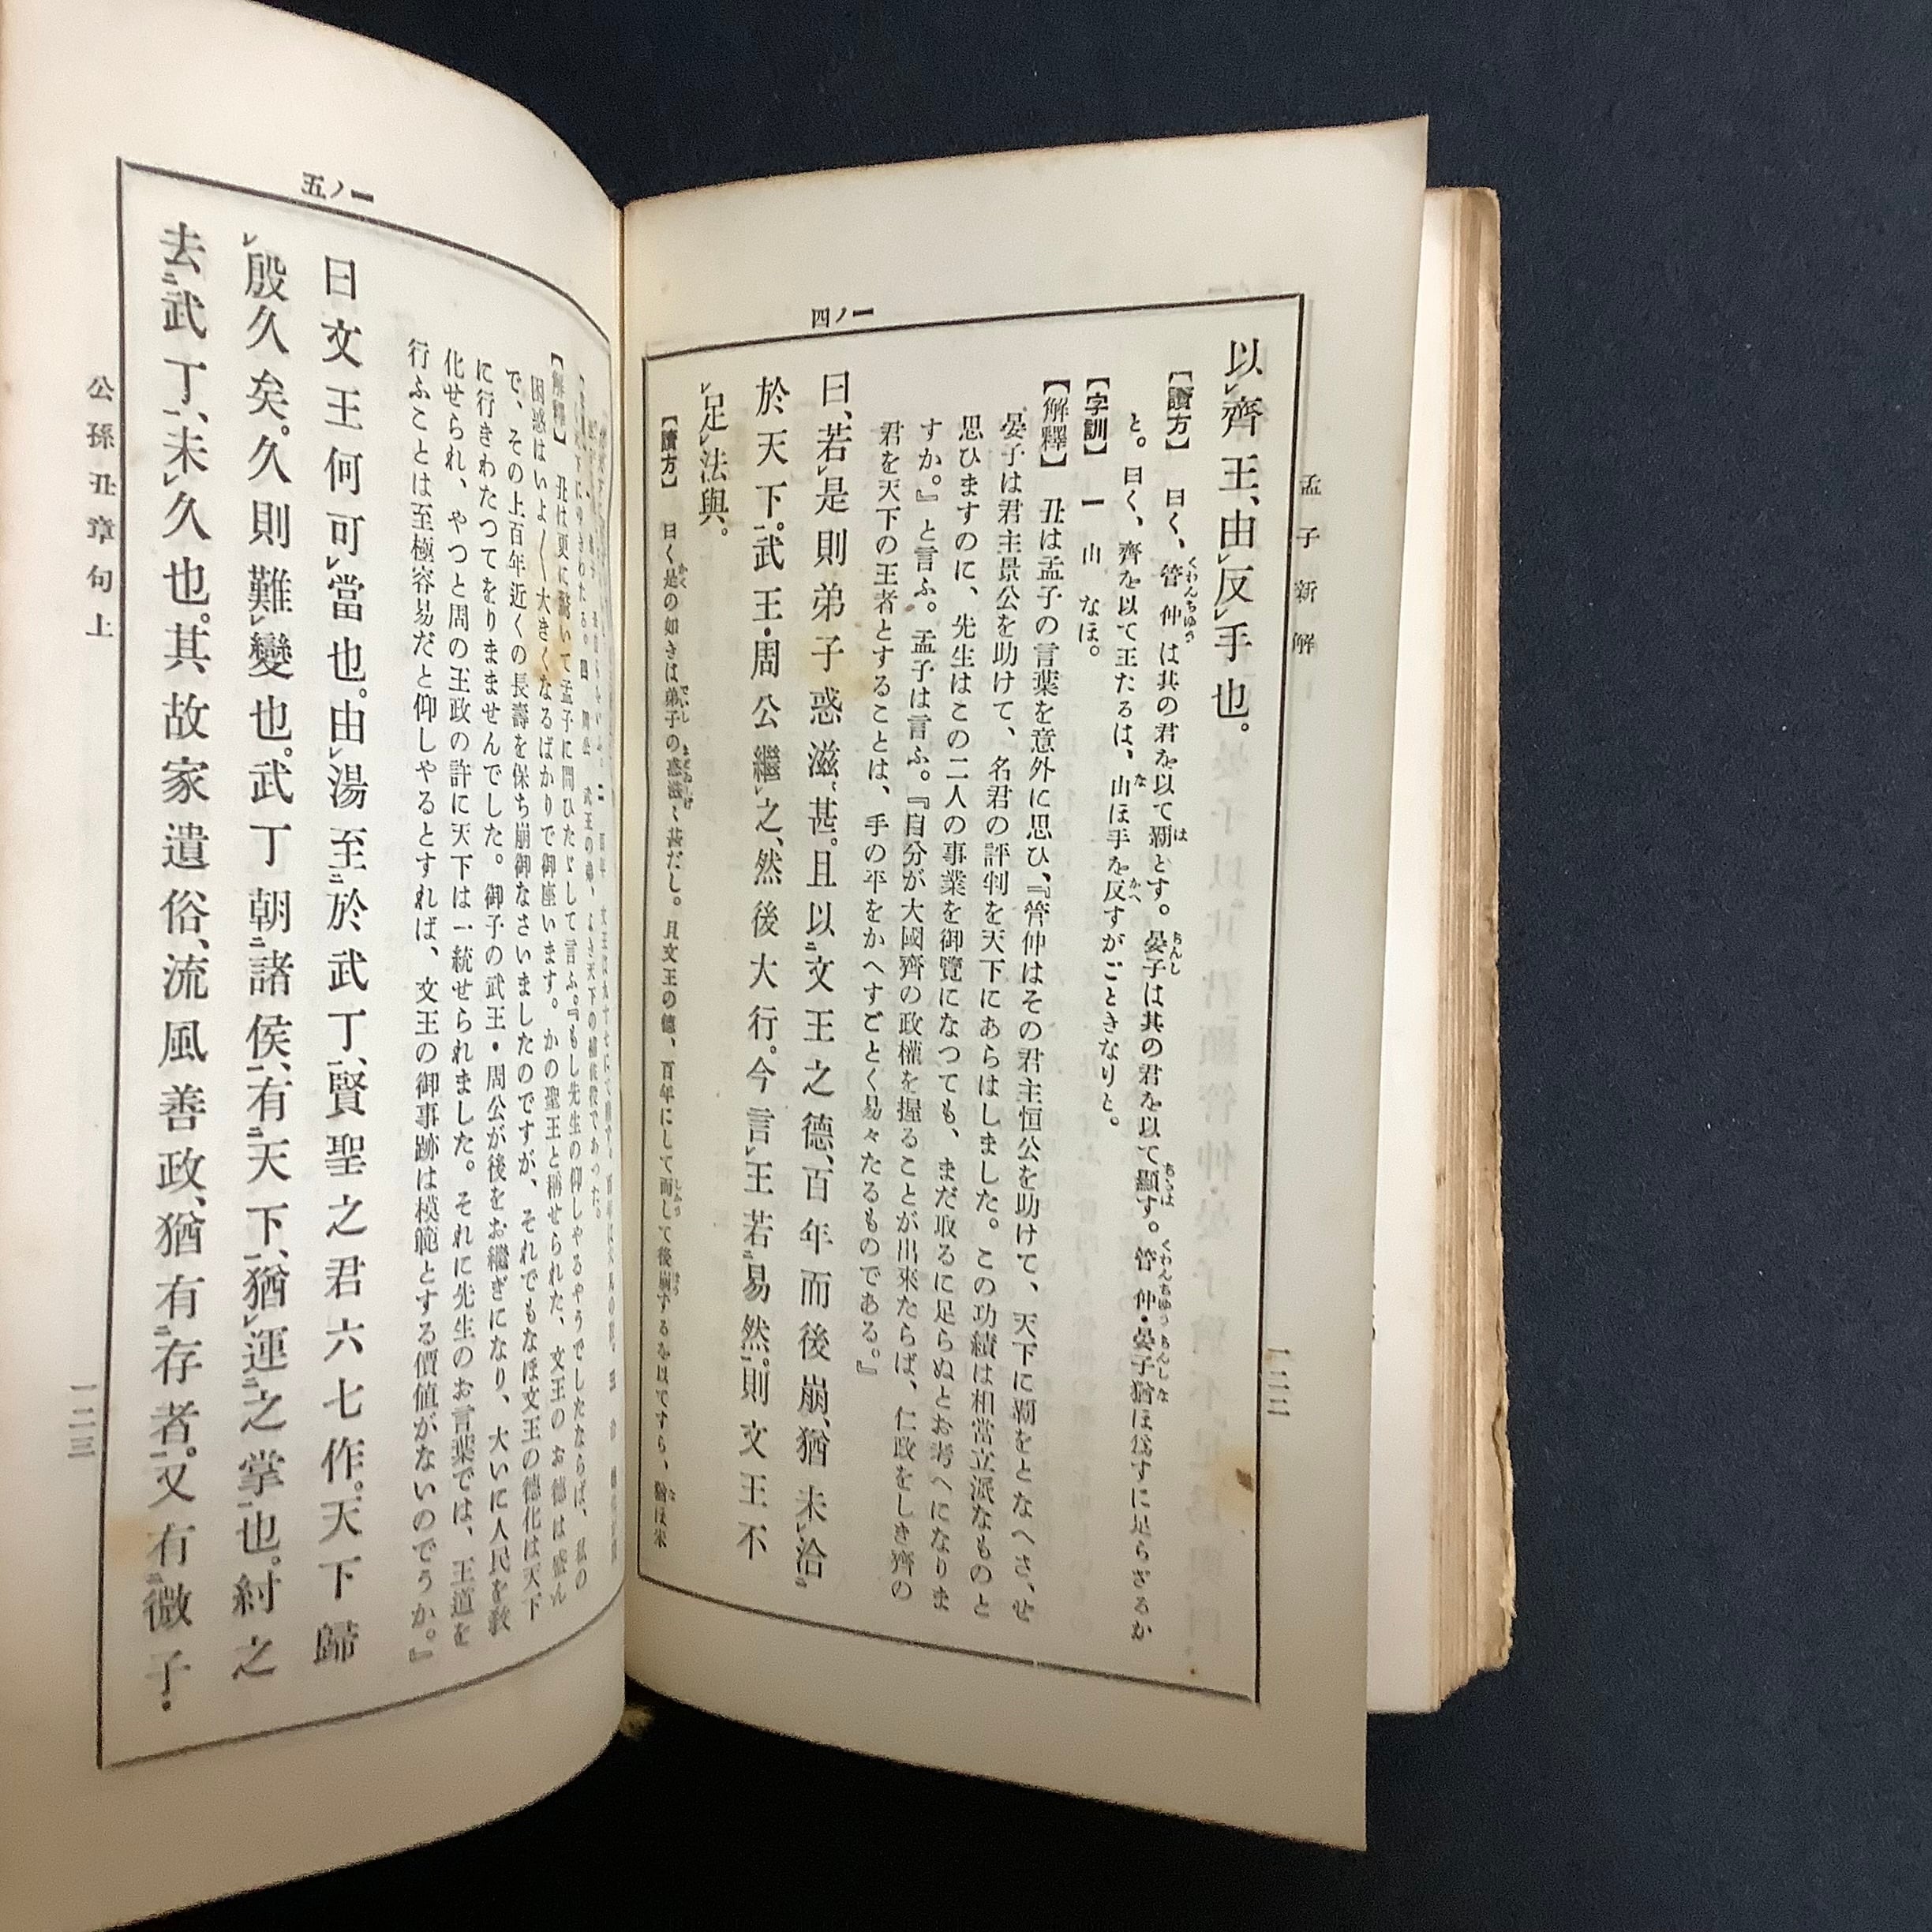 孟子新解
一二二
以㆑齊王、由㆑反㆑手也。
【讀方】 曰く、管仲は其の君を以て覇とす。晏子は其の君を以て顯す。管仲・晏子猶ほ爲すに足らざるか
と。曰く、齊を以て王たるは、由ほ手を反すがごときなりと。
【字訓】 一 由 なほ。
【解釋】 丑は孟子の言葉を意外に思ひ、『管仲はその君主恒公を助けて、天下に覇をとなへさ、せ
晏子は君主景公を助けて、名君の評判を天下にあらはしました。この功績は相當立派なものと
思ひますのに、先生はこの二人の事業を御覽になつても、まだ取るに足らぬとお考へになりま
すか。』と言ふ。孟子は言ふ。『自分が大國齊の政權を握ることが出來たらば、仁政をしき齊の
君を天下の王者とすることは、手の平をかへすごとく易々たるものである。』
一ノ四
曰、若㆑是則弟子惑滋〻甚。且以㆓文王之德、百年而後崩、猶未㆑洽㆓
於天下㆒。武王・周公繼㆑之、然後大行。今言㆑王若㆓易然㆒。則文王不
㆑足㆑法與。
【讀方】 曰く是の如きは弟子の惑滋〻甚だし。且文王の德、百年にして而して後崩ずるを以てすら、猶ほ未
【解釋】 丑は更に驚いて孟子に問ひたゞして言ふ。『もし先生の仰しやるやうでしたならば、私の
困惑はいよ〳〵大きくなるばかりで御座います。かの聖王と稱せられた、文王のお德は盛ん
で、その上百年近くの長壽を保ち崩御なさいましたのですが、それでもなほ文王の德化は天下
に行きわたつてをりまませんでした。御子の武王・周公が後をお繼ぎになり、大いに人民を敎
化せられ、やつと周の王政の許に天下は一統せられました。それに先生のお言葉では、王道を
行ふことは至極容易だと仰しやるとすれば、文王の御事跡は模範とする價値がないのでうか。』
一ノ五
曰文王何可㆑當也。由㆑湯至㆓於武丁㆒、賢聖之君六七作。天下歸
㆑殷久矣。久則難㆑變也。武丁朝㆓諸侯㆒、有㆓天下㆒、猶㆑運㆓之掌㆒也。紂之
去㆓武丁㆒、未㆑久也。其故家遺俗、流風善政、猶有㆓存者㆒。又有㆓微子・
公孫丑章句上
一二三